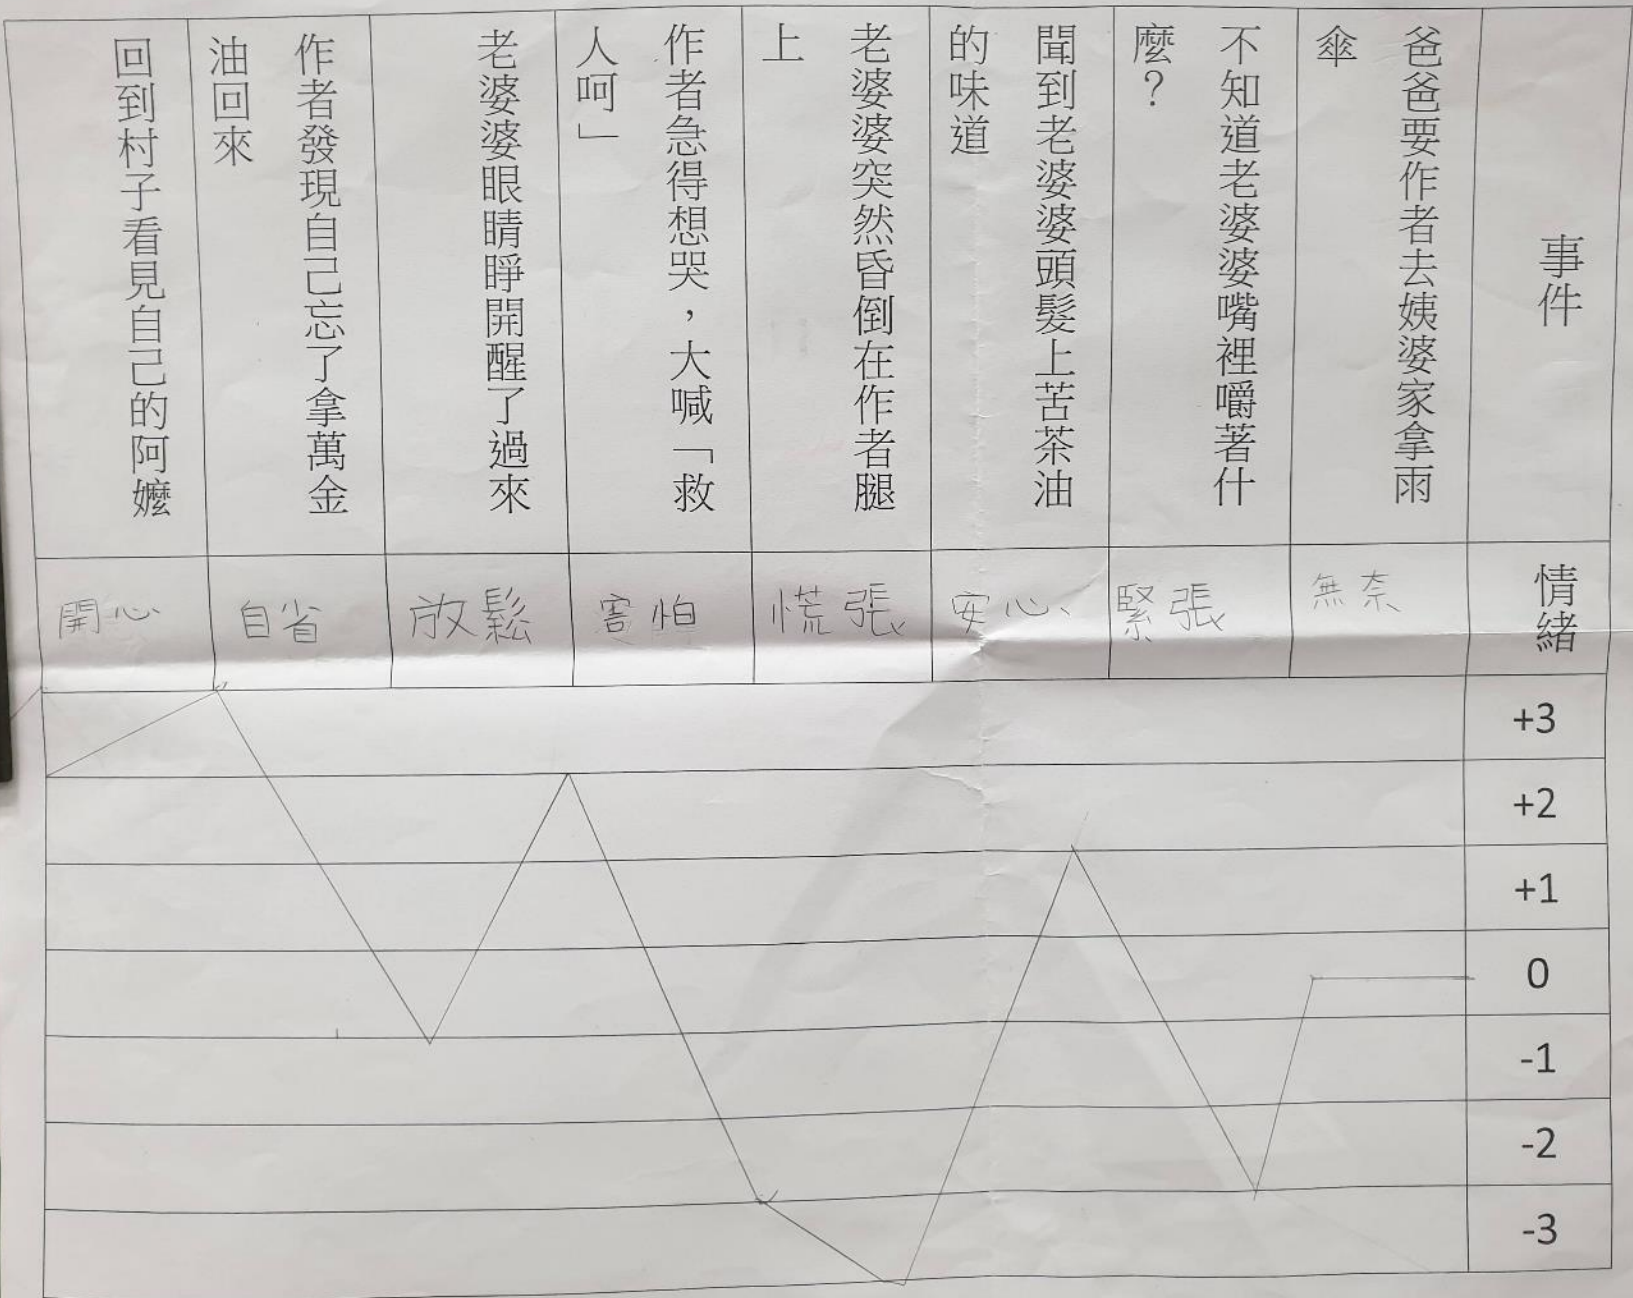 事件
情緒
爸爸要作者去姨婆家拿雨
傘
無奈
不知道老婆婆嘴裡嚼著什
麼？
緊張
聞到老婆婆頭髮上苦茶油
的味道
安心
老婆婆突然昏倒在作者腿
上
慌張
作者急得想哭，大喊「救
人呵」
害怕
老婆婆眼睛睜開醒了過來
放鬆
作者發現自己忘了拿萬金
油回來
自省
回到村子看見自己的阿嬤
開心
+3
+2
+1
0
-1
-2
-3